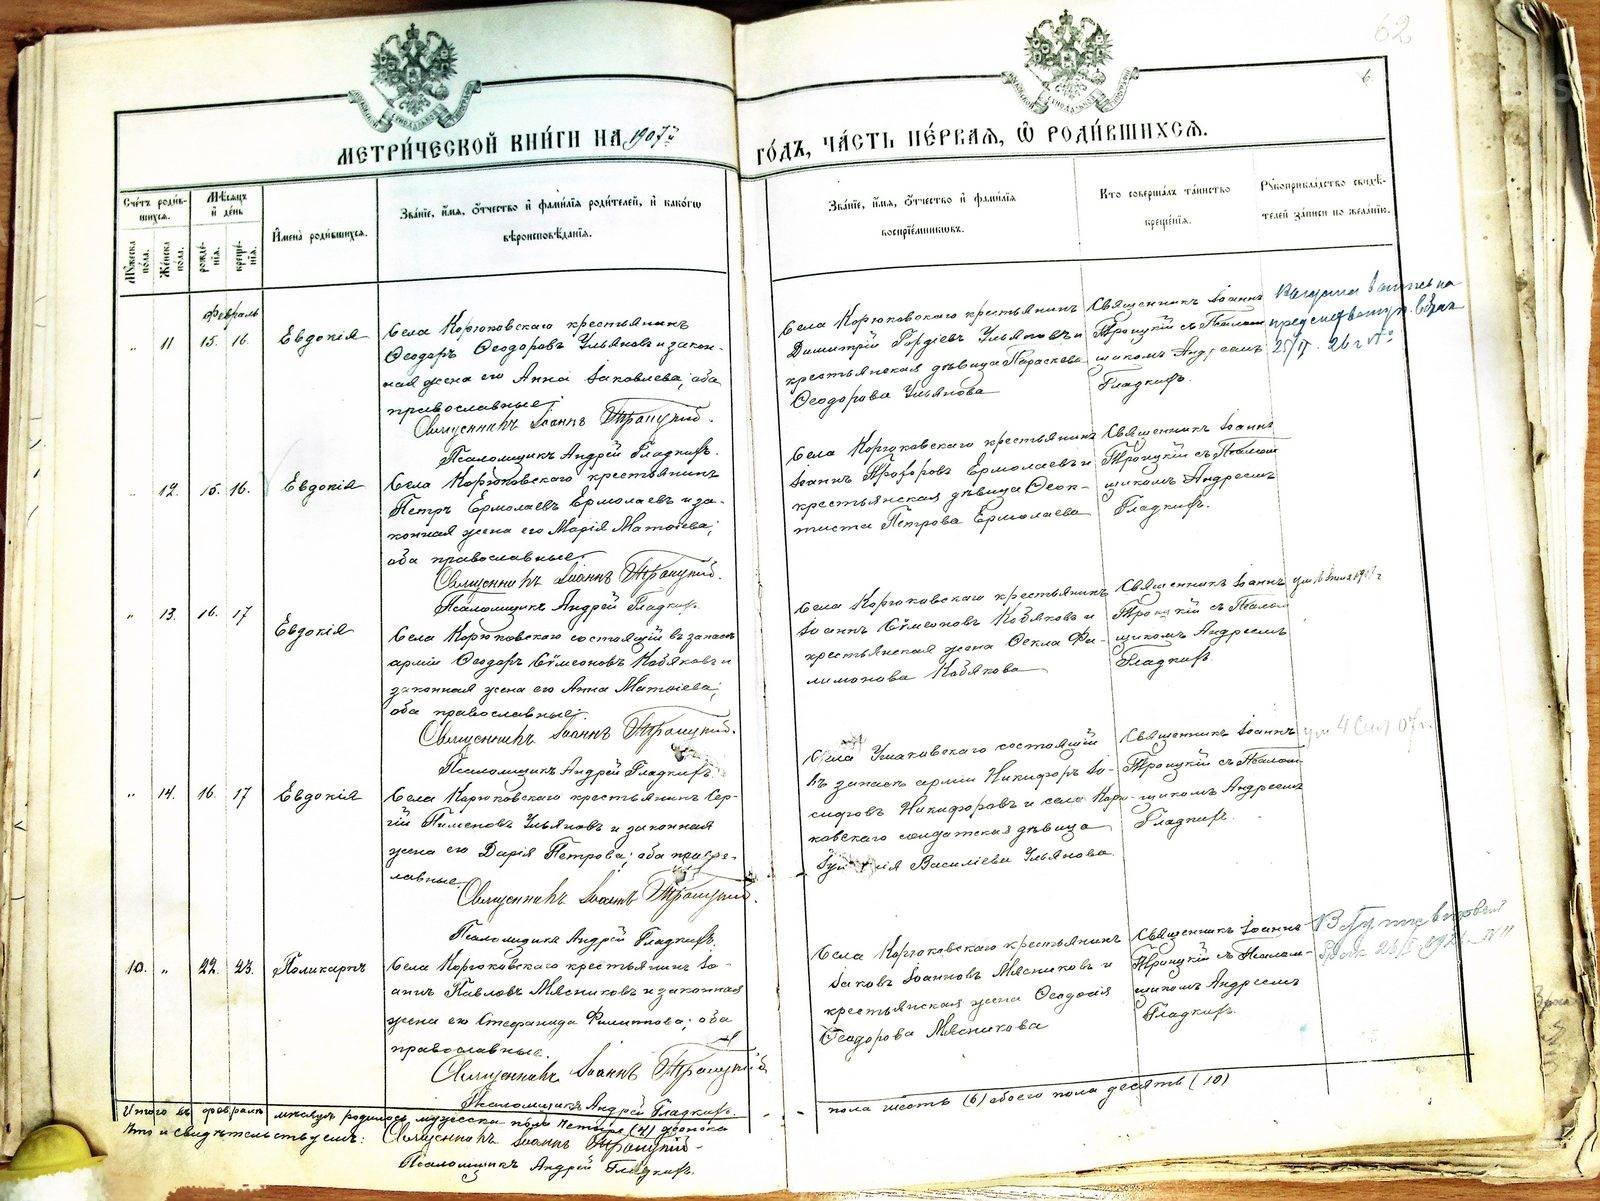 62
6
МЕТРИ́ЧЕСКОЙ КНИ́ГИ НА 1907й
ГО́ДЪ, ЧА́СТЬ ПЕ́РВАЯ, Ѡ РОДИ́ВШИХСЯ.
Сче́тъ роди́в-
шихся.
Мѣ́сяцъ
и́ де́нь
Мꙋ́жеска по́ла.
Же́нска по́ла.
рожде́нїя.
креще́нїя.
И́мена̀ роди́вшихся.
Зва́нїе, и́мя, ѻ́тчество и́ фами́лїя роди́телей, и́ како́гѡ
вѣроисповѣ́данїя.
Зва́нїе, и́мя, ѻ́тчество и́ фами́лїя
воспрїе́мникѡвъ.
Кто̀ соверша́лъ та́инство
креще́нїя.
Рꙋкоприкла́дство свидѣ́-
телей за́писи по жела́нїю.
Февраль
„ 11 15. 16. Евдокія
Села Корюковскаго крестьянинъ
Ѳеодоръ Ѳеодоровъ Ульяновъ и закон-
ная жена его Анна Іаковлева; оба
православные.
Священникъ Іоаннъ Троицкій.
Псаломщикъ Андрей Гладкихъ.
Села Корюковскаго крестьянинъ
Димитрій Гордіевъ Ульяновъ и
крестьянская дѣвица Параскева
Ѳеодорова Ульянова
Священникъ Іоаннъ
Троицкій съ Псалом-
щикомъ Андреемъ
Гладкихъ.
„ 12. 15. 16. Евдокія
Села Корюковскаго крестьянинъ
Петръ Ермолаевъ Ермолаевъ и за-
конная жена его Марія Матѳіева;
оба православные.
Священникъ Іоаннъ Троицкій.
Псаломщикъ Андрей Гладкихъ.
Села Корюковскаго крестьянинъ
Іоаннъ Прохоровъ Ермолаевъ и
крестьянская дѣвица Ѳеок-
тиста Петрова Ермолаева
Священникъ Іоаннъ
Троицкій съ Псалом-
щикомъ Андреемъ
Гладкихъ.
„ 13. 16. 17 Евдокія
Села Корюковскаго состоящій въ запасѣ
арміи Ѳеодоръ Сѵмеоновъ Кобяковъ и
законная жена его Анна Матѳіева;
оба православные.
Священникъ Іоаннъ Троицкій.
Псаломщикъ Андрей Гладкихъ.
Села Корюковскаго крестьянинъ
Іоаннъ Сѵмеоновъ Кобяковъ и
крестьянская жена Ѳекла Фи-
лимонова Кобякова
Священникъ Іоаннъ
Троицкій съ Псалом-
щикомъ Андреемъ
Гладкихъ
„ 14. 16. 17 Евдокія
Села Корюковскаго крестьянинъ Сер-
гій Пименовъ Ульяновъ и законная
жена его Дарія Петрова; оба право-
славные.
Священникъ Іоаннъ Троицкій.
Псаломщикъ Андрей Гладкихъ.
Села Ушаковскаго состоящій
въ запасѣ арміи Никифоръ Іо-
сифовъ Никифоровъ и села Корю-
ковскаго солдатская дѣвица
Василіева Ульянова
Священникъ Іоаннъ
Троицкій съ Псалом-
щикомъ Андреемъ
Гладкихъ.
ум 4 07 г.
10. „ 22. 23. Поликарпъ
Села Корюковскаго крестьянинъ Іо-
аннъ Павловъ Мясниковъ и законная
жена его Стефанида Филиппова; оба
православные.
Священникъ Іоаннъ Троицкій
Псаломщикъ Андрей Гладкихъ.
Села Корюковскаго крестьянинъ
Іаковъ Іоанновъ Мясниковъ и
крестьянская жена Ѳеодосія
Ѳеодорова Мясникова
Священникъ Іоаннъ
Троицкій съ Псалом-
щикомъ Андреемъ
Гладкихъ.
Итого въ февралѣ мѣсяцѣ родилось мужеска пола четыре (4) женска
пола шесть (6) обоего пола десять (10)
что и свидѣтельствуемъ: Священникъ Іоаннъ Троицкій
Псаломщикъ Андрей Гладкихъ.